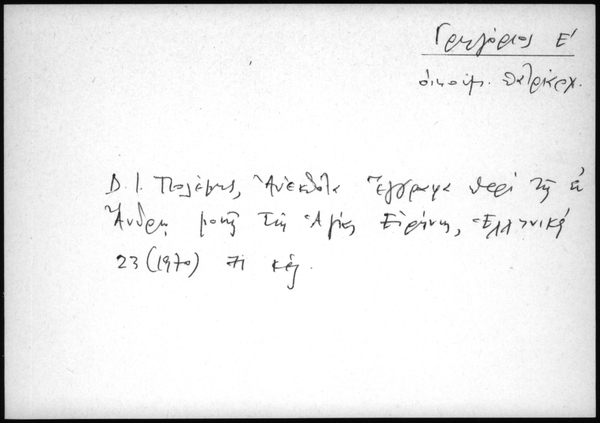 Γρηγόριος Ε'
οἰκουμ. Πατριάρχ.
Δ. Ι. Πολέμης, Ἀνέκδοτα Ἔγγραφα περὶ τῆς ἐν
Ἄνδρῳ μονῆς τῆς Ἁγίας Εἰρήνης, Ἑλληνικά
23 (1970) 71 κἑξ.